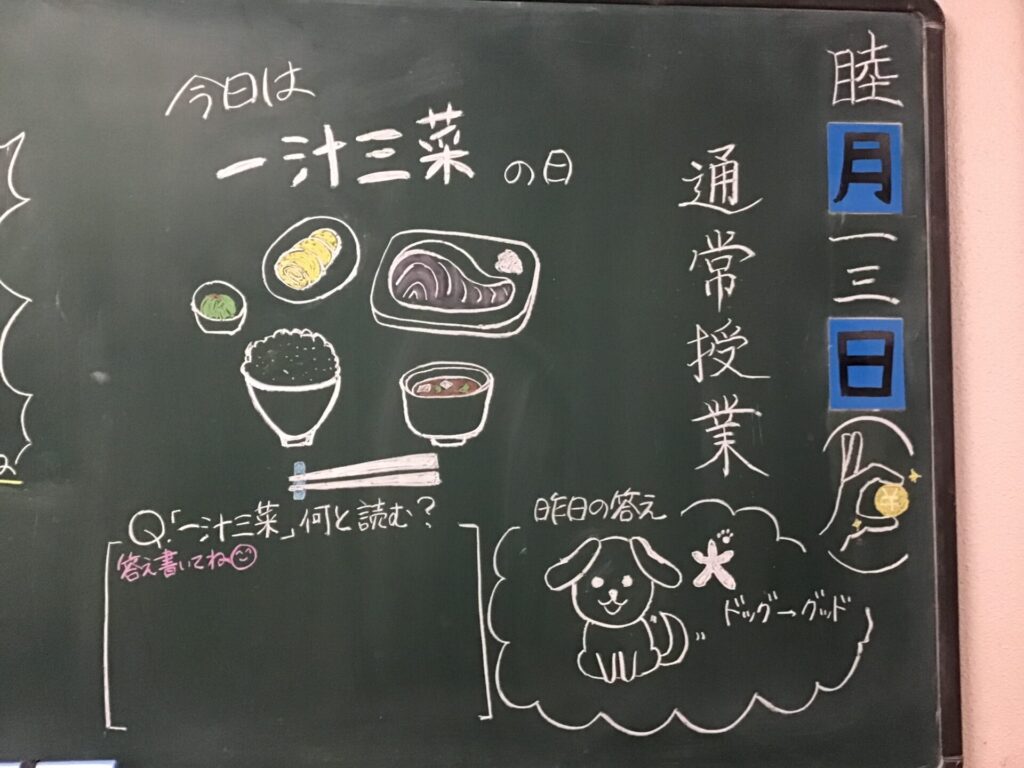 睦月一三日
通常授業
今日は
一汁三菜の日
Q.「一汁三菜」何と読む?
答え書いてね
昨日の答え
犬
ドッグ→グッド
¥